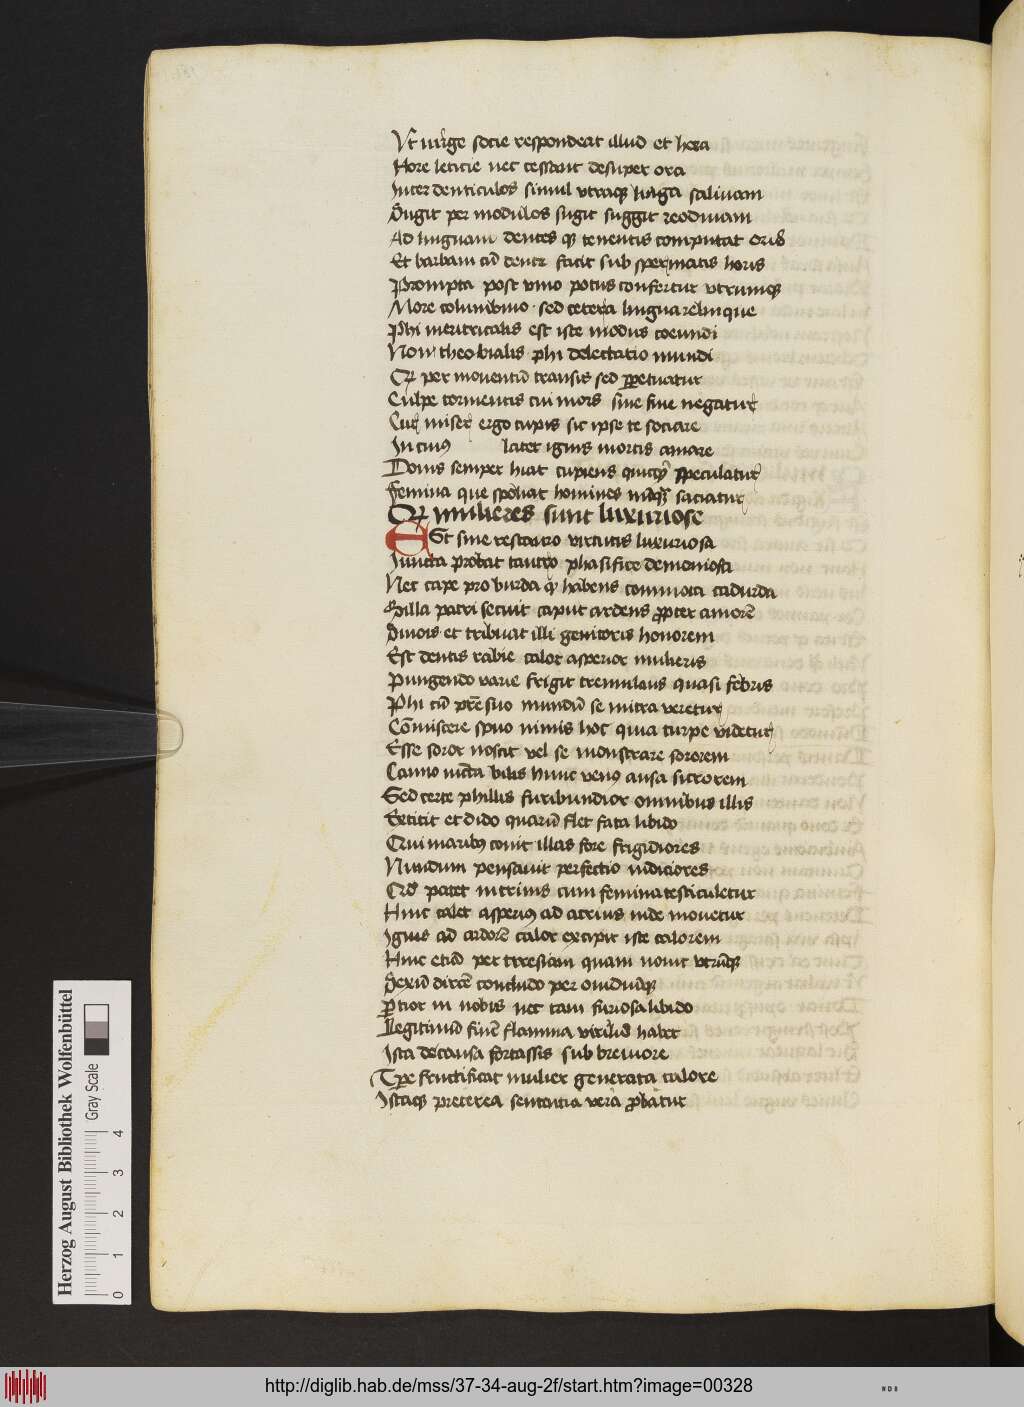 Vt iurge socie respondeat illud et hera
More leticie nec cessant desuper ora
Inter denticulos simul vtraqꝫ liuga saliuam
Sugit per modulos sugit suggit rediuiam
Ad linguam dentes qꝫ tenentis computat oris
Et barbam cū dente facit sub spermatis horis
Prompta post vino potus confertur vtrumqꝫ
More columbino sed cetera lingua relinque
Phi meritricalis est iste modus coeundi
Non theobialis phi delectatio mundi
Qꝛ per momentū transis sed ꝑpetuatur
Culpe tormentis cui mors sine fine negatur
Cur miser ergo cupis sic ipse te sociare
In cuiꝰ latet ignis mortis amare
Domus semper hiat cupiens speculatur
Femina que spoliat homines saciatur
Qꝛ mulieres sunt luxuriose
Est sine restauro virtutis luxuriosa
Iuncta probat tauro phasifice demoniosa
Nec cape pro burda qꝫ habens commota cadurda
Silla patri secuit caput ardens ꝓpter amorē
Minois et tribuat illi genitoris honorem
Est dentis rabie calor asperior mulieris
Pungendo varie frigit tremulans quasi febris
Phi cū pr̄e suo mundū se mirra veretur
Cōmiscere suo nimis hoc quia turpe videtur
Esse soror noscit vel se monstrare sororem
Canno iūcta bilis hunc venꝰ ausa sitrorem
Sed certe phillis furibundior omnibus illis
Extitit et dido quarū flet fata libido
Qui maribꝰ conit illas fore frigidiores
Nundum pensauit perfectio iudiciores
Qd̄ patet in trinis cum femina testiculetur
Hinc calet asperiꝰ ad atrius inde mouetur
Ignis ad ardorē calor excipit iste calorem
Hinc etiā per tyresiam quam nouit vtrūqꝫ
Sexū dircē concludo per ouidiūqꝫ
Ꝑcior in nobis nec tam furiosa libido
Legitimū finē flamma virilis habet
Ista de causa fortassis sub breuiore
Tꝑe fructificat mulier generata calore
Istaqꝫ preterea sententia vera ꝓbatur
Herzog August Bibliothek Wolfenbüttel
Gray Scale
0 1 2 3 4
http://diglib.hab.de/mss/37-34-aug-2f/start.htm?image=00328